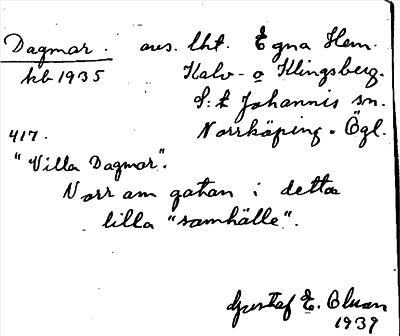 Dagmar. avs. lht. Egna Hem.
kb 1935 Kalv- o Klingsberg.
S:t Johannis sn.
417. Norrköping. Ögl.
"Villa Dagmar".
Norr om gatan i detta
lilla "samhälle".
Gustaf E.
1939